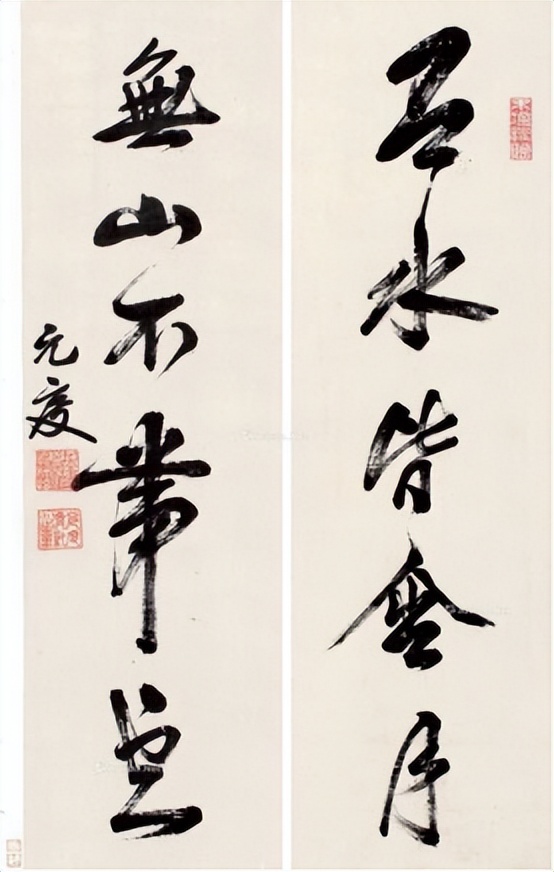 有水皆含月
無山不帶雲
元